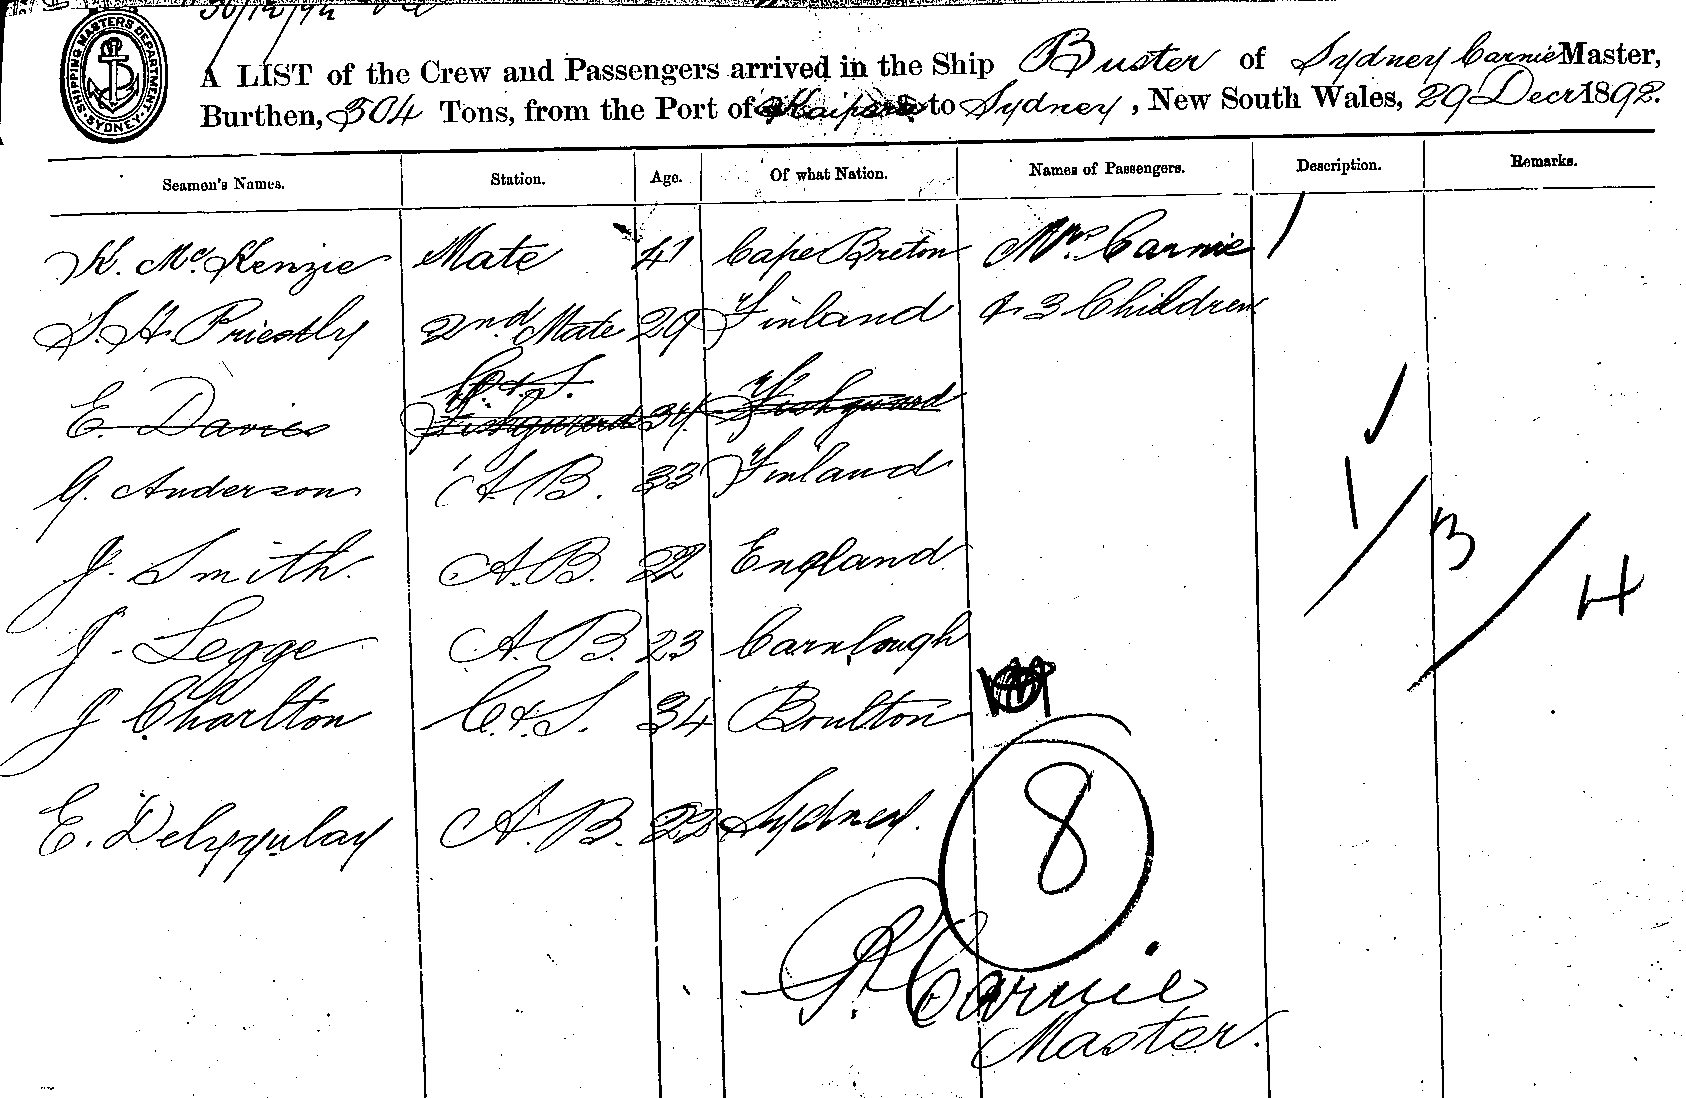 30/12/92
SHIPPING MASTERS DEPARTMENT SYDNEY
A LIST of the Crew and Passengers arrived in the Ship Buster of Sydney Carnie Master,
Burthen, 304 Tons, from the Port of Kaipara to Sydney, New South Wales, 29 Decr 1892.
Seamen's Names. Station. Age. Of what Nation. Names of Passengers. Description. Remarks.
K. McKenzie Mate 41 Cape Breton Mrs. Carnie 1
S. H. Priestly 2nd Mate 29 Finland & 3 Children
E. Davies C & S. Fishguard 34 Fishguard
G. Anderson A B. 33 Finland
J. Smith. A.B. 22 England
1 / 3 / 4
J. Legge A.B. 23 Carnlough
J Charlton C & S. 34 Boulton
E. A.B. 22 Sydney.
8
Carnie
Master.